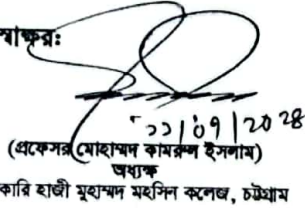 স্বাক্ষর:
১১/০৭/২০২৪
(প্রফেসর মোহাম্মদ কামরুল ইসলাম)
অধ্যক্ষ
কারি হাজী মুহাম্মদ মহসিন কলেজ, চট্টগ্রাম